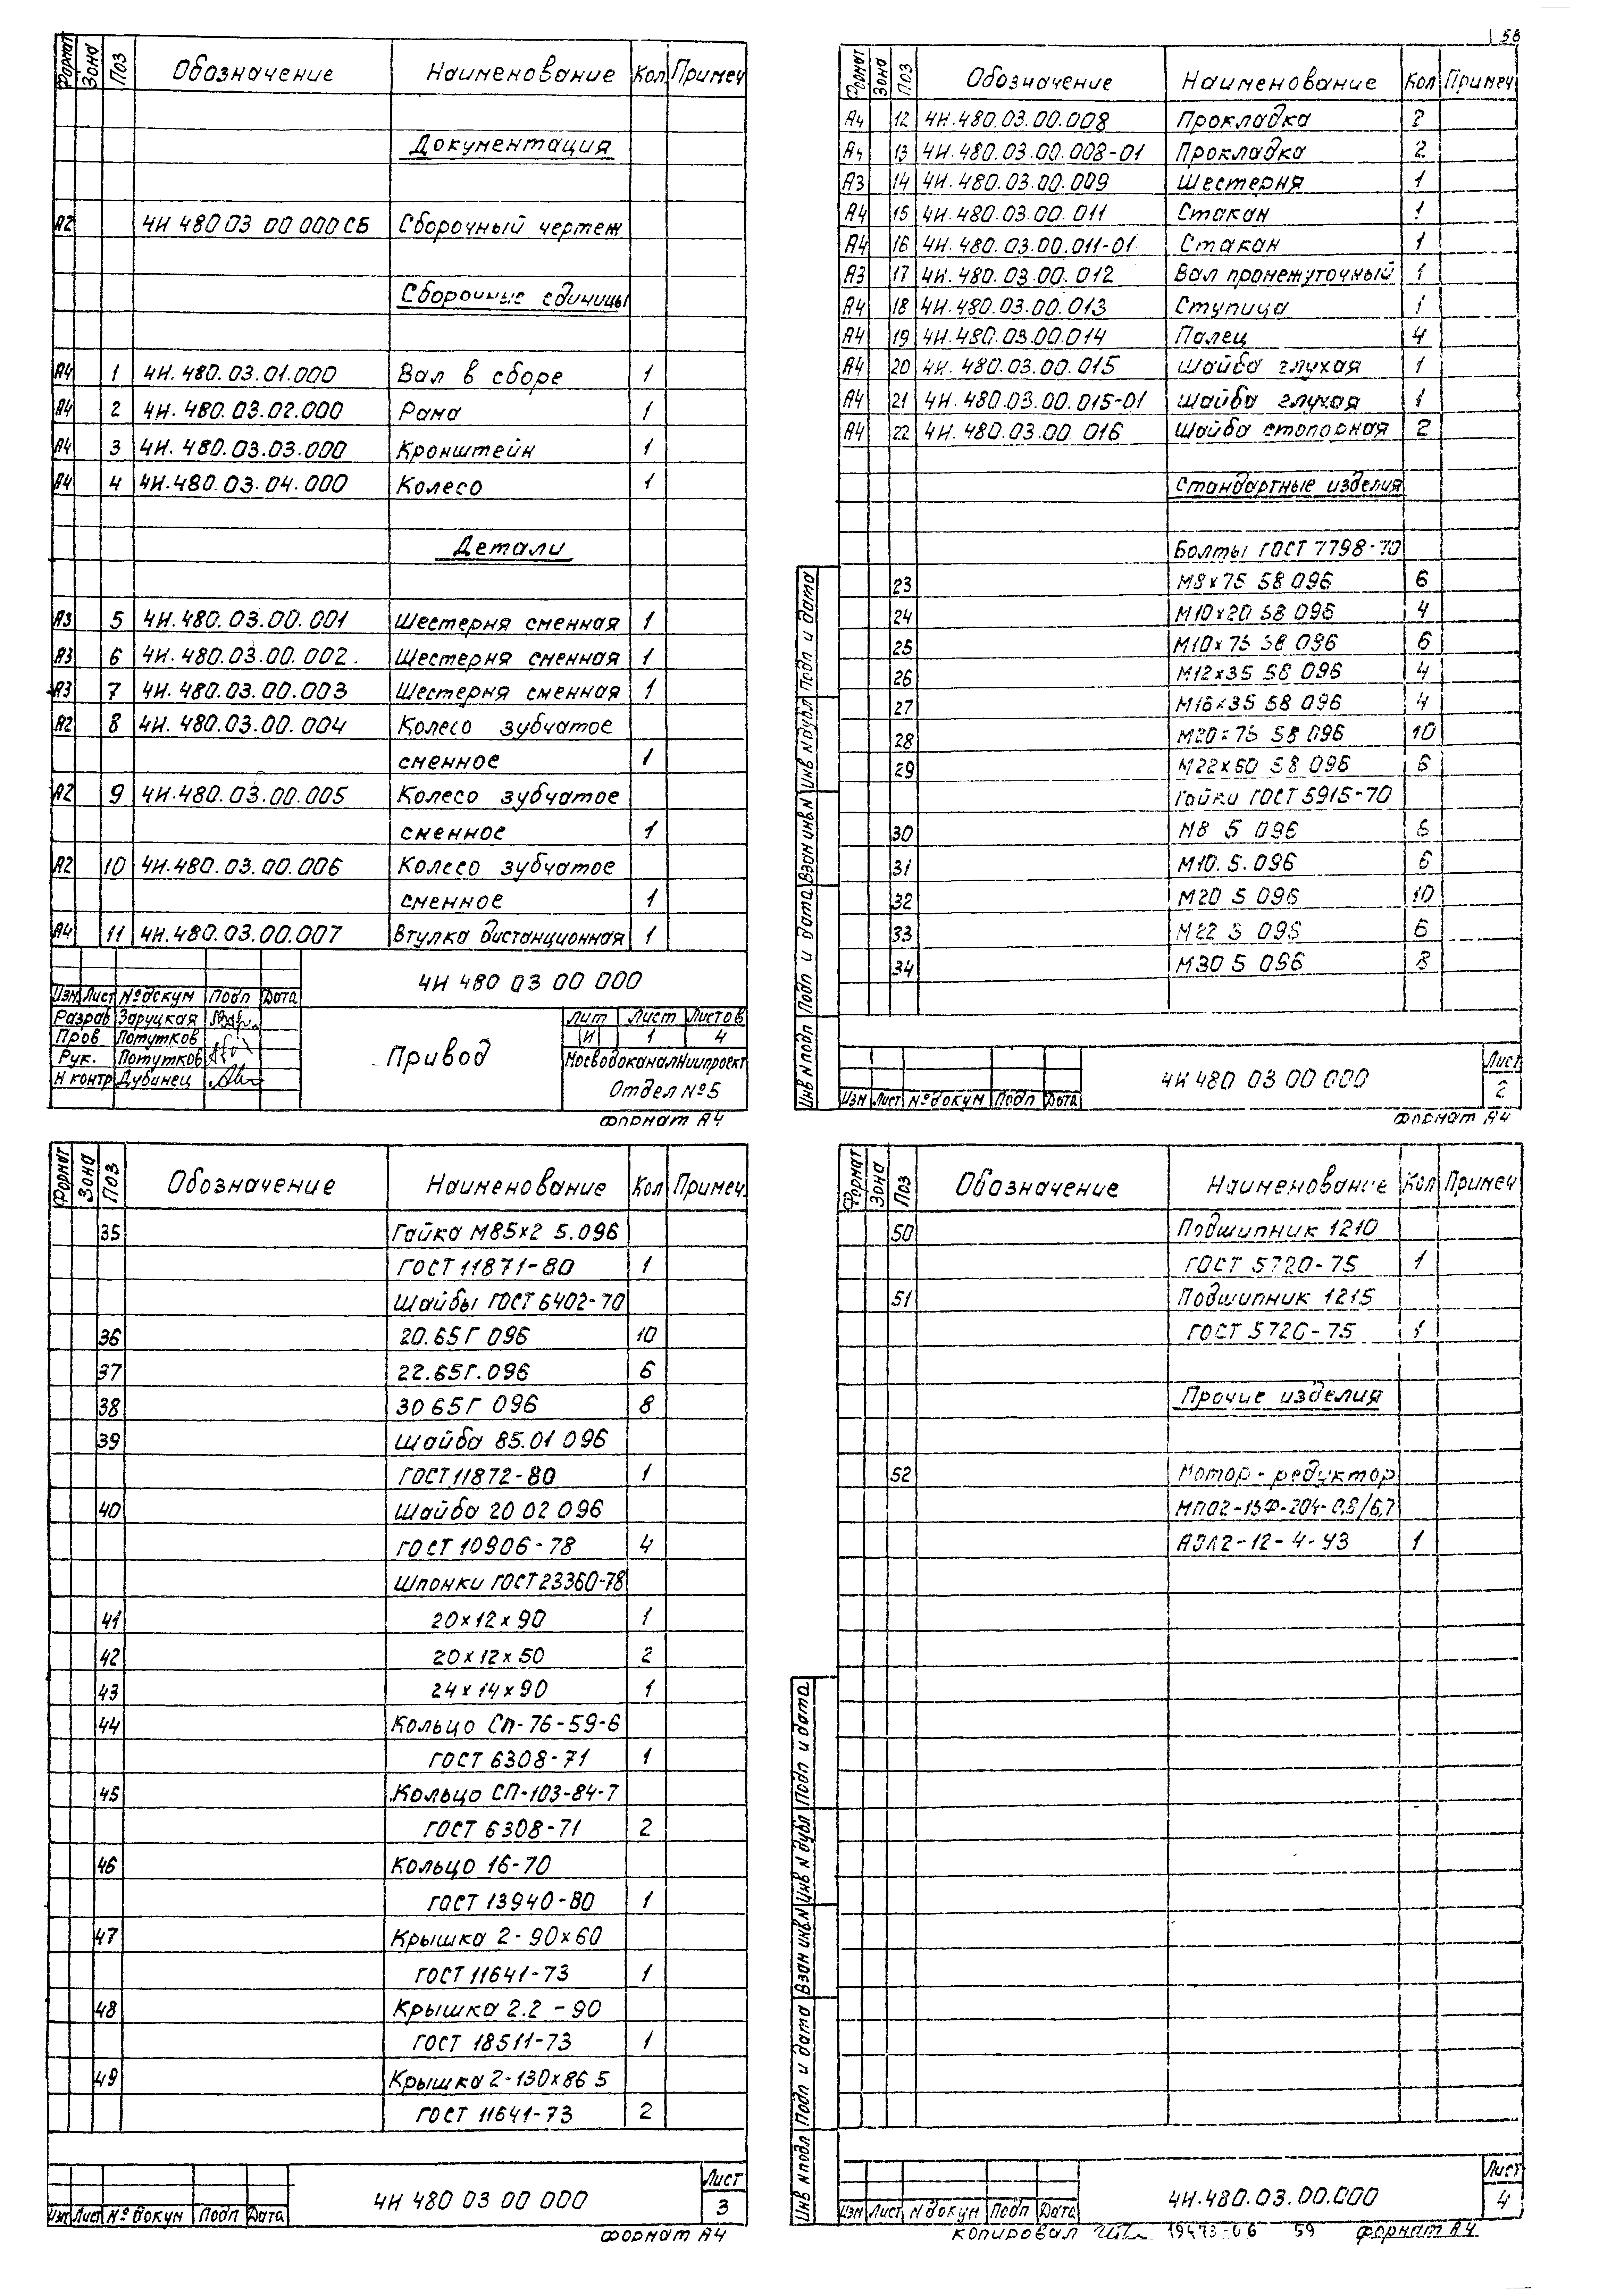 58
Формат Зона Поз Обозначение Наименование Кол Примеч
Документация
А2 4И 480 03 00 000 СБ Сборочный чертеж
Сборочные единицы
А4 1 4И.480.03.01.000 Вал в сборе 1
А4 2 4И.480.03.02.000 Рама 1
А4 3 4И.480.03.03.000 Кронштейн 1
А4 4 4И.480.03.04.000 Колесо 1
Детали
А3 5 4И.480.03.00.001 Шестерня сменная 1
А3 6 4И.480.03.00.002. Шестерня сменная 1
А3 7 4И.480.03.00.003 Шестерня сменная 1
А2 8 4И.480.03.00.004 Колесо зубчатое
сменное 1
А2 9 4И.480.03.00.005 Колесо зубчатое
сменное 1
А2 10 4И.480.03.00.006 Колесо зубчатое
сменное 1
А4 11 4И.480.03.00.007 Втулка дистанционная 1
4И 480 03 00 000
Изм Лист № докум Подп Дата
Разраб Заруцкая
Пров Потутков
Рук. Потутков
Н контр Дубинец
Привод
Лит Лист Листов
И 1 4
МосводоканалНиипроект
Отдел №5
Формат А4
Формат Зона Поз Обозначение Наименование Кол Примеч
А4 12 4И.480.03.00.008 Прокладка 2
А4 13 4И.480.03.00.008-01 Прокладка 2
А3 14 4И.480.03.00.009 Шестерня 1
А4 15 4И.480.03.00.011 Стакан 1
А4 16 4И.480.03.00.011-01 Стакан 1
А3 17 4И.480.03.00.012 Вал промежуточный 1
А4 18 4И.480.03.00.013 Ступица 1
А4 19 4И.480.03.00.014 Палец 4
А4 20 4И.480.03.00.015 Шайба глухая 1
А4 21 4И.480.03.00.015-01 Шайба глухая 1
А4 22 4И.480.03.00.016 Шайба стопорная 2
Стандартные изделия
Болты ГОСТ 7798-70
23 М8х75 58 096 6
24 М10х20 58 096 4
25 М10х75 58 096 6
26 М12х35 58 096 4
27 М16х35 58 096 4
28 М20х75 58 096 10
29 М22х60 58 096 6
Гайки ГОСТ 5915-70
30 М8 5 096 6
31 М10.5.096 6
32 М20 5 096 10
33 М22 5 096 6
34 М30 5 096 8
Инв № подл Подп и дата Взам инв.№ Инв № дубл Подп и дата
Изм Лист № докум Подп Дата
4И 480 03 00 000
Лист
2
Формат А4
Формат Зона Поз Обозначение Наименование Кол Примеч.
35 Гайка М85х2 5.096
ГОСТ 11871-80 1
Шайбы ГОСТ 6402-70
36 20.65Г 096 10
37 22.65Г.096 6
38 30 65Г 096 8
39 Шайба 85.01 096
ГОСТ 11872-80 1
40 Шайба 20 02 096
ГОСТ 10906-78 4
Шпонки ГОСТ 23360-78
41 20х12х90 1
42 20х12х50 2
43 24х14х90 1
44 Кольцо СП-76-59-6
ГОСТ 6308-71 1
45 Кольцо СП-103-84-7
ГОСТ 6308-71 2
46 Кольцо 16-70
ГОСТ 13940-80 1
47 Крышка 2-90х60
ГОСТ 11641-73 1
48 Крышка 2.2-90
ГОСТ 18511-73 1
49 Крышка 2-130х86 5
ГОСТ 11641-73 2
Изм Лист № докум Подп Дата
4И 480 03 00 000
Лист
3
Формат А4
Формат Зона Поз Обозначение Наименование Кол Примеч
50 Подшипник 1210
ГОСТ 5720-75 1
51 Подшипник 1215
ГОСТ 5720-75 1
Прочие изделия
52 Мотор-редуктор
АОЛ2-12-4-У3 1
Инв № подл Подп и дата Взам инв.№ Инв № дубл Подп и дата
Изм Лист № докум Подп Дата
4И.480.03.00.000
Лист
4
Копировал 19473-06 59 Формат А4